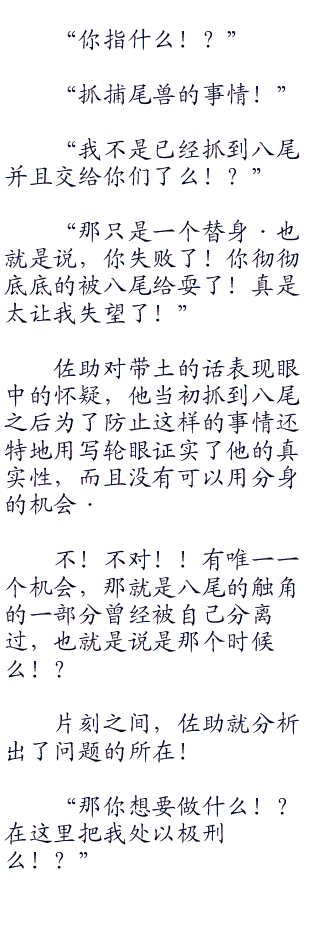 “你指什么！？”
“抓捕尾兽的事情！”
“我不是已经抓到八尾
并且交给你们了么！？”
“那只是一个替身·也
就是说，你失败了！你彻彻
底底的被八尾给耍了！真是
太让我失望了！”
佐助对带土的话表现眼
中的怀疑，他当初抓到八尾
之后为了防止这样的事情还
特地用写轮眼证实了他的真
实性，而且没有可以用分身
的机会·
不！不对！！有唯一一
个机会，那就是八尾的触角
的一部分曾经被自己分离
过，也就是说是那个时候
么！？
片刻之间，佐助就分析
出了问题的所在！
“那你想要做什么！？
在这里把我处以极刑
么！？”